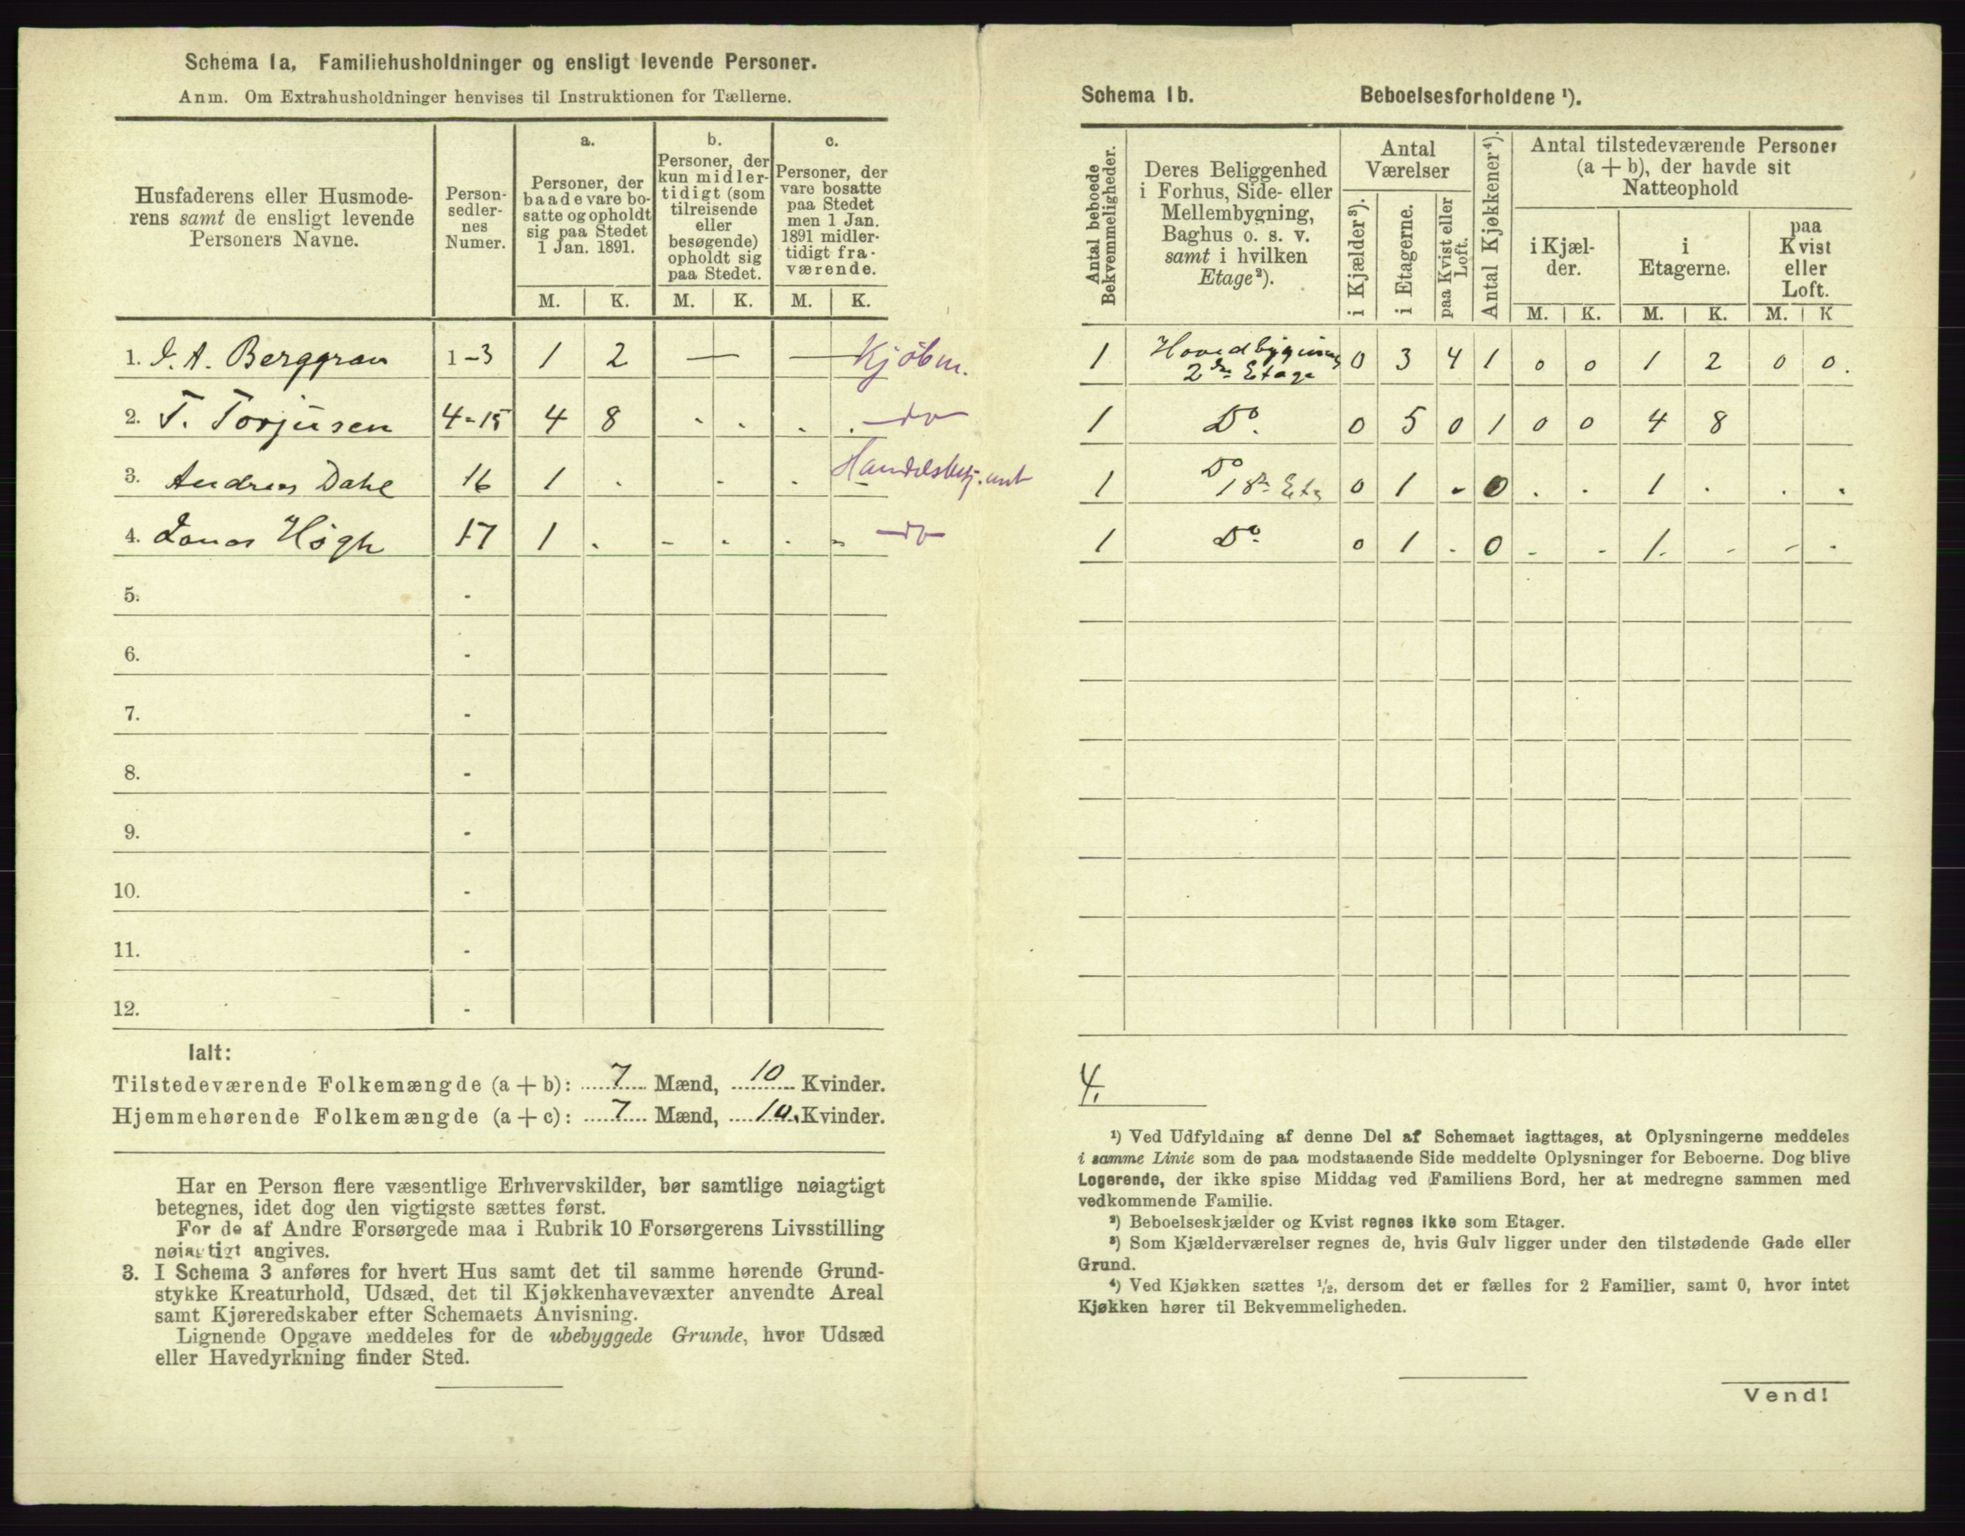 Schema 1a. Familiehusholdninger og ensligt levende Personer.
Anm. Om Extrahusholdninger henvises til Instruktionen for Tællerne.
Husfaderens eller Husmode-
rens samt de ensligt levende
Personers Navne.
Person-
sedler-
nes
Numer.
a.
Personer, der
baade vare bo-
satte og opholdt
sig paa Stedet
1 Jan. 1891.
b.
Personer, der
kun midler-
tidigt (som
tilreisende
eller
besøgende)
opholdt sig
paa Stedet.
c.
Personer, der
vare bosatte
paa Stedet
men 1 Jan.
1891 midler-
tidigt fra-
værende.
M. K. M. K. M. K.
1. J. A. Berggran 1-3 1 2 — — Kjøbm.
2. T. Torjusen 4-15 4 8 - . . . do
3. Andreas Dahl 16 1 . - . Handelsbetj.
4. Jonas Høgh 17 1 . - . . - do
5. -
6. -
7. -
8. -
9. -
10. -
11. -
12. -
Ialt:
Tilstedeværende Folkemængde (a + b): 7 Mænd, 10 Kvinder.
Hjemmehørende Folkemængde (a + c): 7 Mænd, 10 Kvinder.
Har en Person flere væsentlige Erhvervskilder, bør samtlige nøiagtigt
betegnes, idet dog den vigtigste sættes først.
For de af Andre Forsørgede maa i Rubrik 10 Forsørgerens Livsstilling
nøiagtigt angives.
3. I Schema 3 anføres for hvert Hus samt det til samme hørende Grund-
stykke Kreaturhold, Udsæd, det til Kjøkkenhavevæxter anvendte Areal
samt Kjøreredskaber efter Schemaets Anvisning.
Lignende Opgave meddeles for de ubebyggede Grunde, hvor Udsæd
eller Havedyrkning finder Sted.
Schema 1b. Beboelsesforholdene ¹).
Antal beboede
Bekvemmeligheder.
Deres Beliggenhed
i Forhus, Side- eller
Mellembygning,
Baghus o. s. v.
samt i hvilken
Etage²).
Antal
Værelser
i Kjælder³).
i Etagerne.
paa Kvist eller
Loft.
Antal Kjøkkener⁴).
Antal tilstedeværende Personer
(a + b), der havde sit
Natteophold
i Kjæl-
der.
i
Etagerne.
paa
Kvist
eller
Loft.
M. K. M. K. M. K
1 Hovedbygning 2den Etage 0 3 4 1 0 0 1 2 0 0.
1 Do. 0 5 0 1 0 0 4 8
1 Do 1ste Etg 0 1 - 0 . . 1 . . .
1 Do. 0 1 . 0 - - 1. - - .
4.
¹) Ved Udfyldning af denne Del af Schemaet iagttages, at Oplysningerne meddeles
i samme Linie som de paa modstaaende Side meddelte Oplysninger for Beboerne. Dog blive
Logerende, der ikke spise Middag ved Familiens Bord, her at medregne sammen med
vedkommende Familie.
²) Beboelseskjælder og Kvist regnes ikke som Etager.
³) Som Kjælderværelser regnes de, hvis Gulv ligger under den tilstødende Gade eller
Grund.
⁴) Ved Kjøkken sættes ½, dersom det er fælles for 2 Familier, samt 0, hvor intet
Kjøkken hører til Bekvemmeligheden.
Vend!